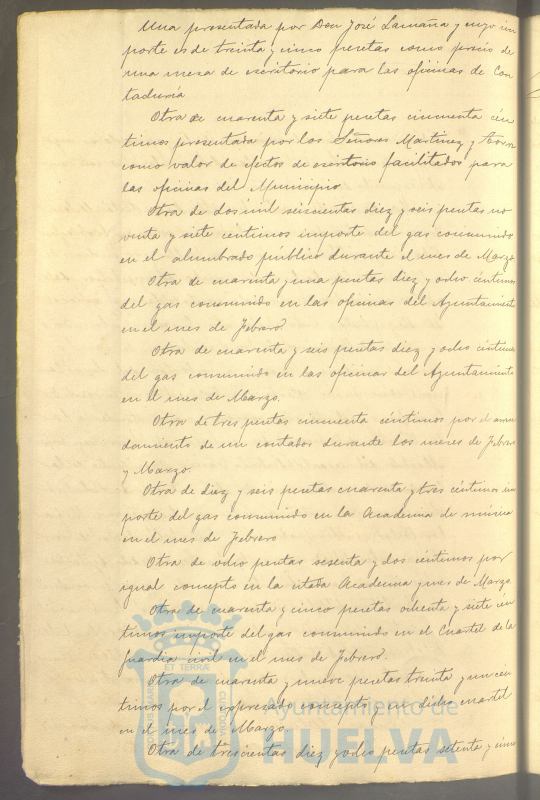 Una presentada por Don José Lamaña y cuyo im
porte es de treinta y cinco pesetas como precio de
una mesa de escritorio para las oficinas de Con
taduría
Otra de cuarenta y siete pesetas cincuenta cén
timos presentada por los Señores Martinez y
como valor de efectos de escritorio facilitados para
las oficinas del Municipio
Otra de dos mil seiscientas diez y seis pesetas no
venta y siete céntimos importe del gas consumido
en el alumbrado público durante el mes de Marzo
Otra de cuarenta y una pesetas diez y ocho céntimos
del gas consumido en las oficinas del Ayuntamiento
en el mes de Febrero.
Otra de cuarenta y seis pesetas diez y ocho céntimos
del gas consumido en las oficinas del Ayuntamiento
en el mes de Marzo.
Otra de tres pesetas cincuenta céntimos por el arren
damiento de un contador durante los meses de Febrero
y Marzo.
Otra de diez y seis pesetas cuarenta y tres céntimos im
porte del gas consumido en la Academia de música
en el mes de Febrero
Otra de ocho pesetas sesenta y dos céntimos por
igual concepto en la citada Academia y mes de Marzo
Otra de cuarenta y cinco pesetas ochenta y siete cén
timos importe del gas consumido en el Cuartel de la
Guardia civil en el mes de Febrero.
Otra de cuarenta y nueve pesetas treinta y un cén
timos por el expresado concepto y en dicho cuartel
en el mes de Marzo.
Otra de trescientas diez y ocho pesetas setenta y cinco
Ayuntamiento de
HUELVA